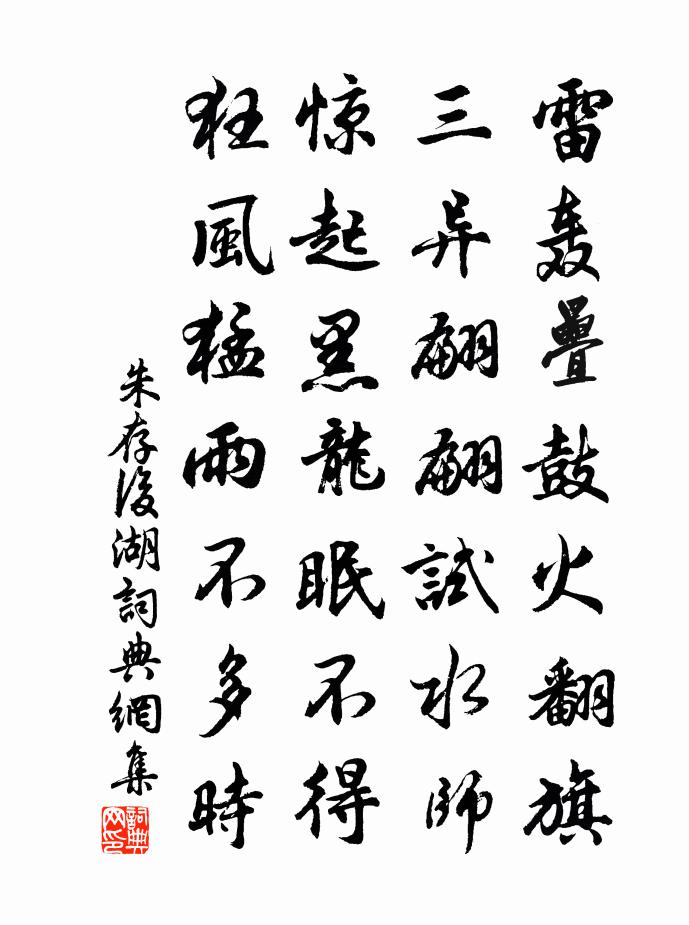 雷轰疊鼓火翻旗
三异翩翩試水師
惊起黑龍眠不得
狂風猛雨不多時
朱存後湖詞典網集
詞典网印